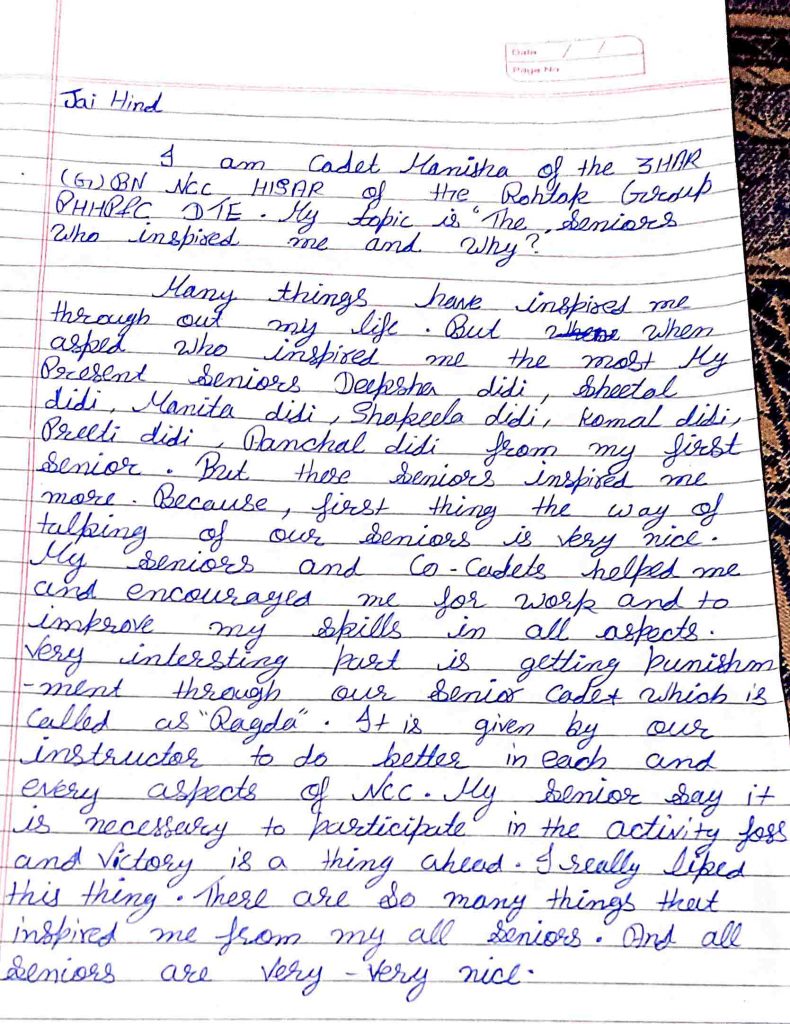 Date / /
Page No
Jai Hind
I am Cadet Manisha of the 3HAR
(G) BN NCC HISAR of the Rohtak Group
PHHP&C DTE. My topic is "The Seniors
who inspired me and why?
Many things have inspired me
through out my life. But when
asked who inspired me the most My
Present Seniors Deeksha didi, Sheetal
didi, Manita didi, Shakeela didi, Komal didi,
Preeti didi, Panchal didi from my first
Senior. But these Seniors inspired me
more. Because, first thing the way of
talking of our Seniors is very nice.
My Seniors and Co-Cadets helped me
and encouraged me for work and to
improve my skills in all aspects.
Very intersting part is getting punishm
-ment through our Senior Cadet which is
called as "Ragda". It is given by our
instructor to do better in each and
every aspects of NCC. My Senior Say it
is necessary to participate in the activity loss
and Victory is a thing ahead. I really liked
this thing. There are So many things that
inspired me from my all Seniors. And all
Seniors are Very-Very nice.